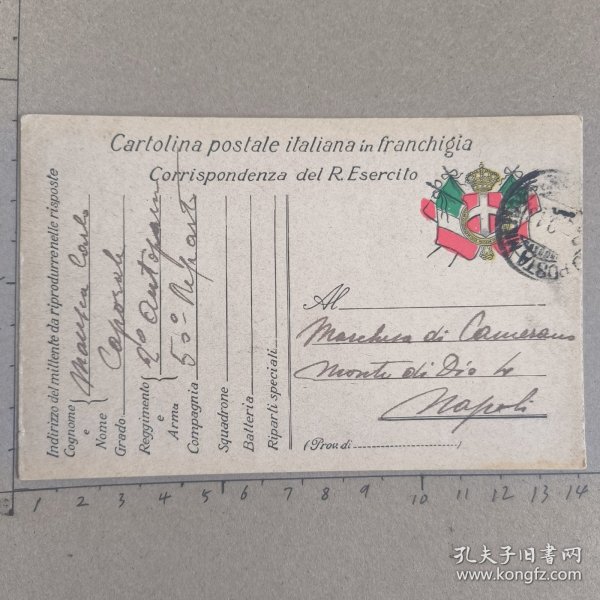 Cartolina postale italiana in franchigia
Corrispondenza del R. Esercito
Indirizzo del mittente da riprodurre nelle risposte
Cognome e Nome Carlo
Grado Caporale
Reggimento e Arma 2º
Compagnia 50º Reparto
Squadrone
Batteria
Riparti speciali
POSTA
Al
di Camerano
Monte di Dio 4
Napoli
(Prov. di )
1 2 3 4 5 6 7 8 9 10 11 12 13 14
孔夫子旧书网
www.kongfz.com